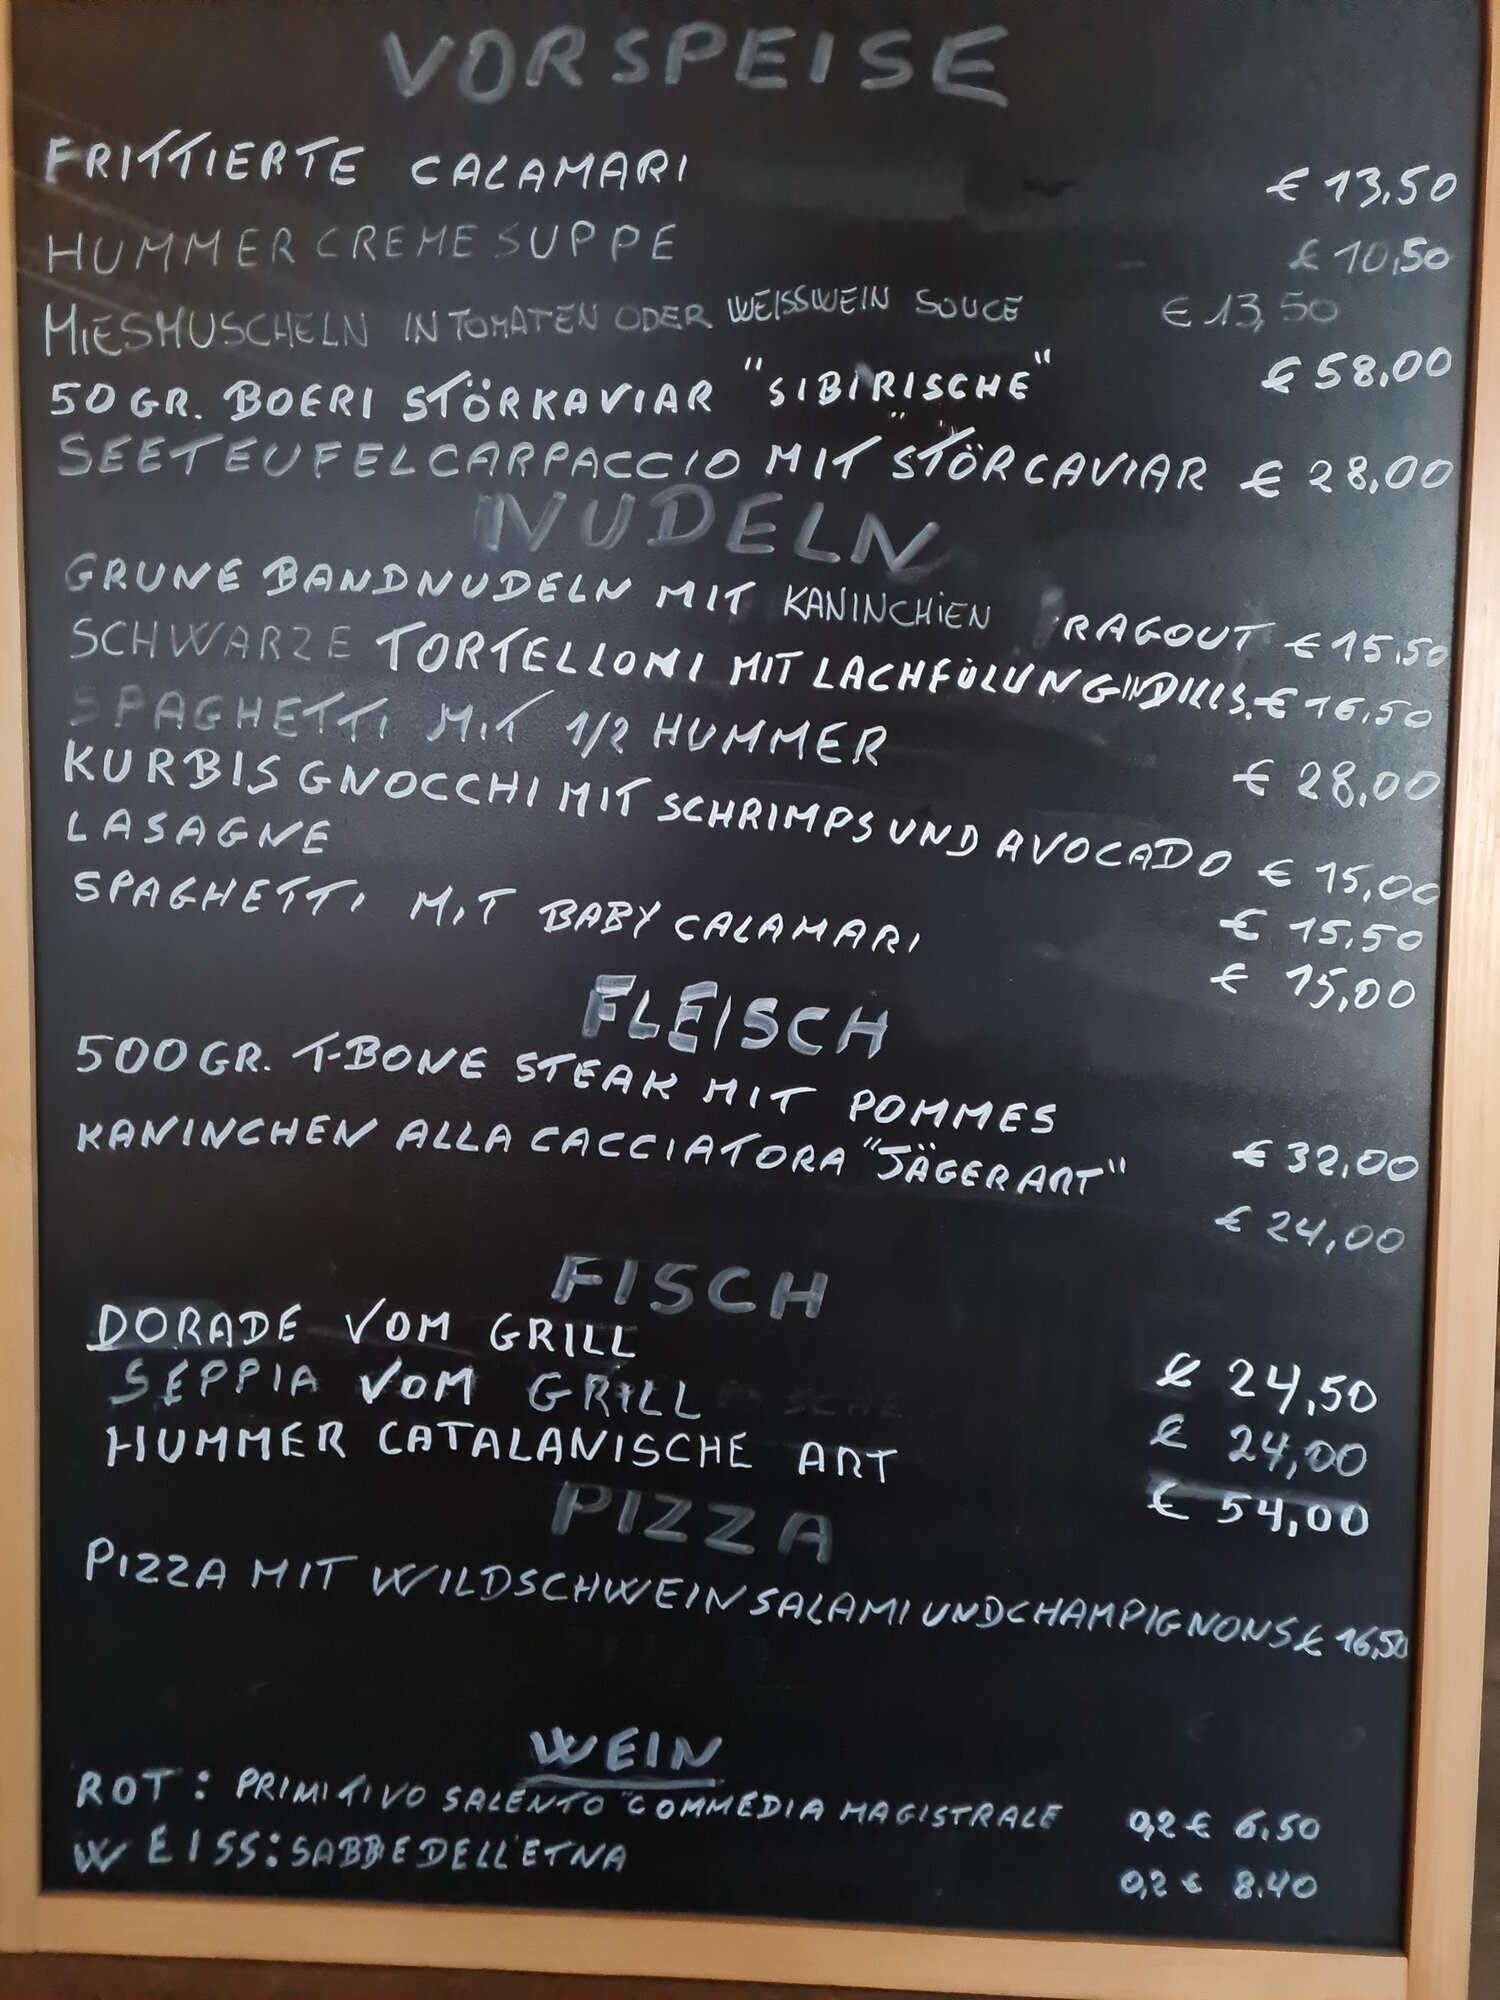 VORSPEISE
FRITTIERTE CALAMARI € 13,50
HUMMERCREMESUPPE € 10,50
MIESMUSCHELN IN TOMATEN ODER WEISSWEIN SOUCE € 13,50
50GR. BOERI STÖRKAVIAR "SIBIRISCHE" € 58,00
SEETEUFELCARPACCIO MIT STÖRCAVIAR € 28,00
NUDELN
GRUNE BANDNUDELN MIT KANINCHIEN RAGOUT € 15,50
SCHWARZE TORTELLONI MIT LACHFÜLUNG € 16,50
SPAGHETTI MIT 1/2 HUMMER € 28,00
KURBIS GNOCCHI MIT SCHRIMPS UND AVOCADO € 15,00
LASAGNE € 15,50
SPAGHETTI MIT BABY CALAMARI € 15,00
FLEISCH
500GR. T-BONE STEAK MIT POMMES € 32,00
KANINCHEN ALLA CACCIATORA "JÄGERART" € 24,00
FISCH
DORADE VOM GRILL € 24,50
SEPPIA VOM GRILL € 24,00
HUMMER CATALANISCHE ART € 54,00
PIZZA
PIZZA MIT WILDSCHWEINSALAMI UND CHAMPIGNONS € 16,50
WEIN
ROT: PRIMITIVO SALENTO "COMMEDIA MAGISTRALE 0,2 € 6.50
WEISS: SABBIE DELL'ETNA 0,2 € 8.40